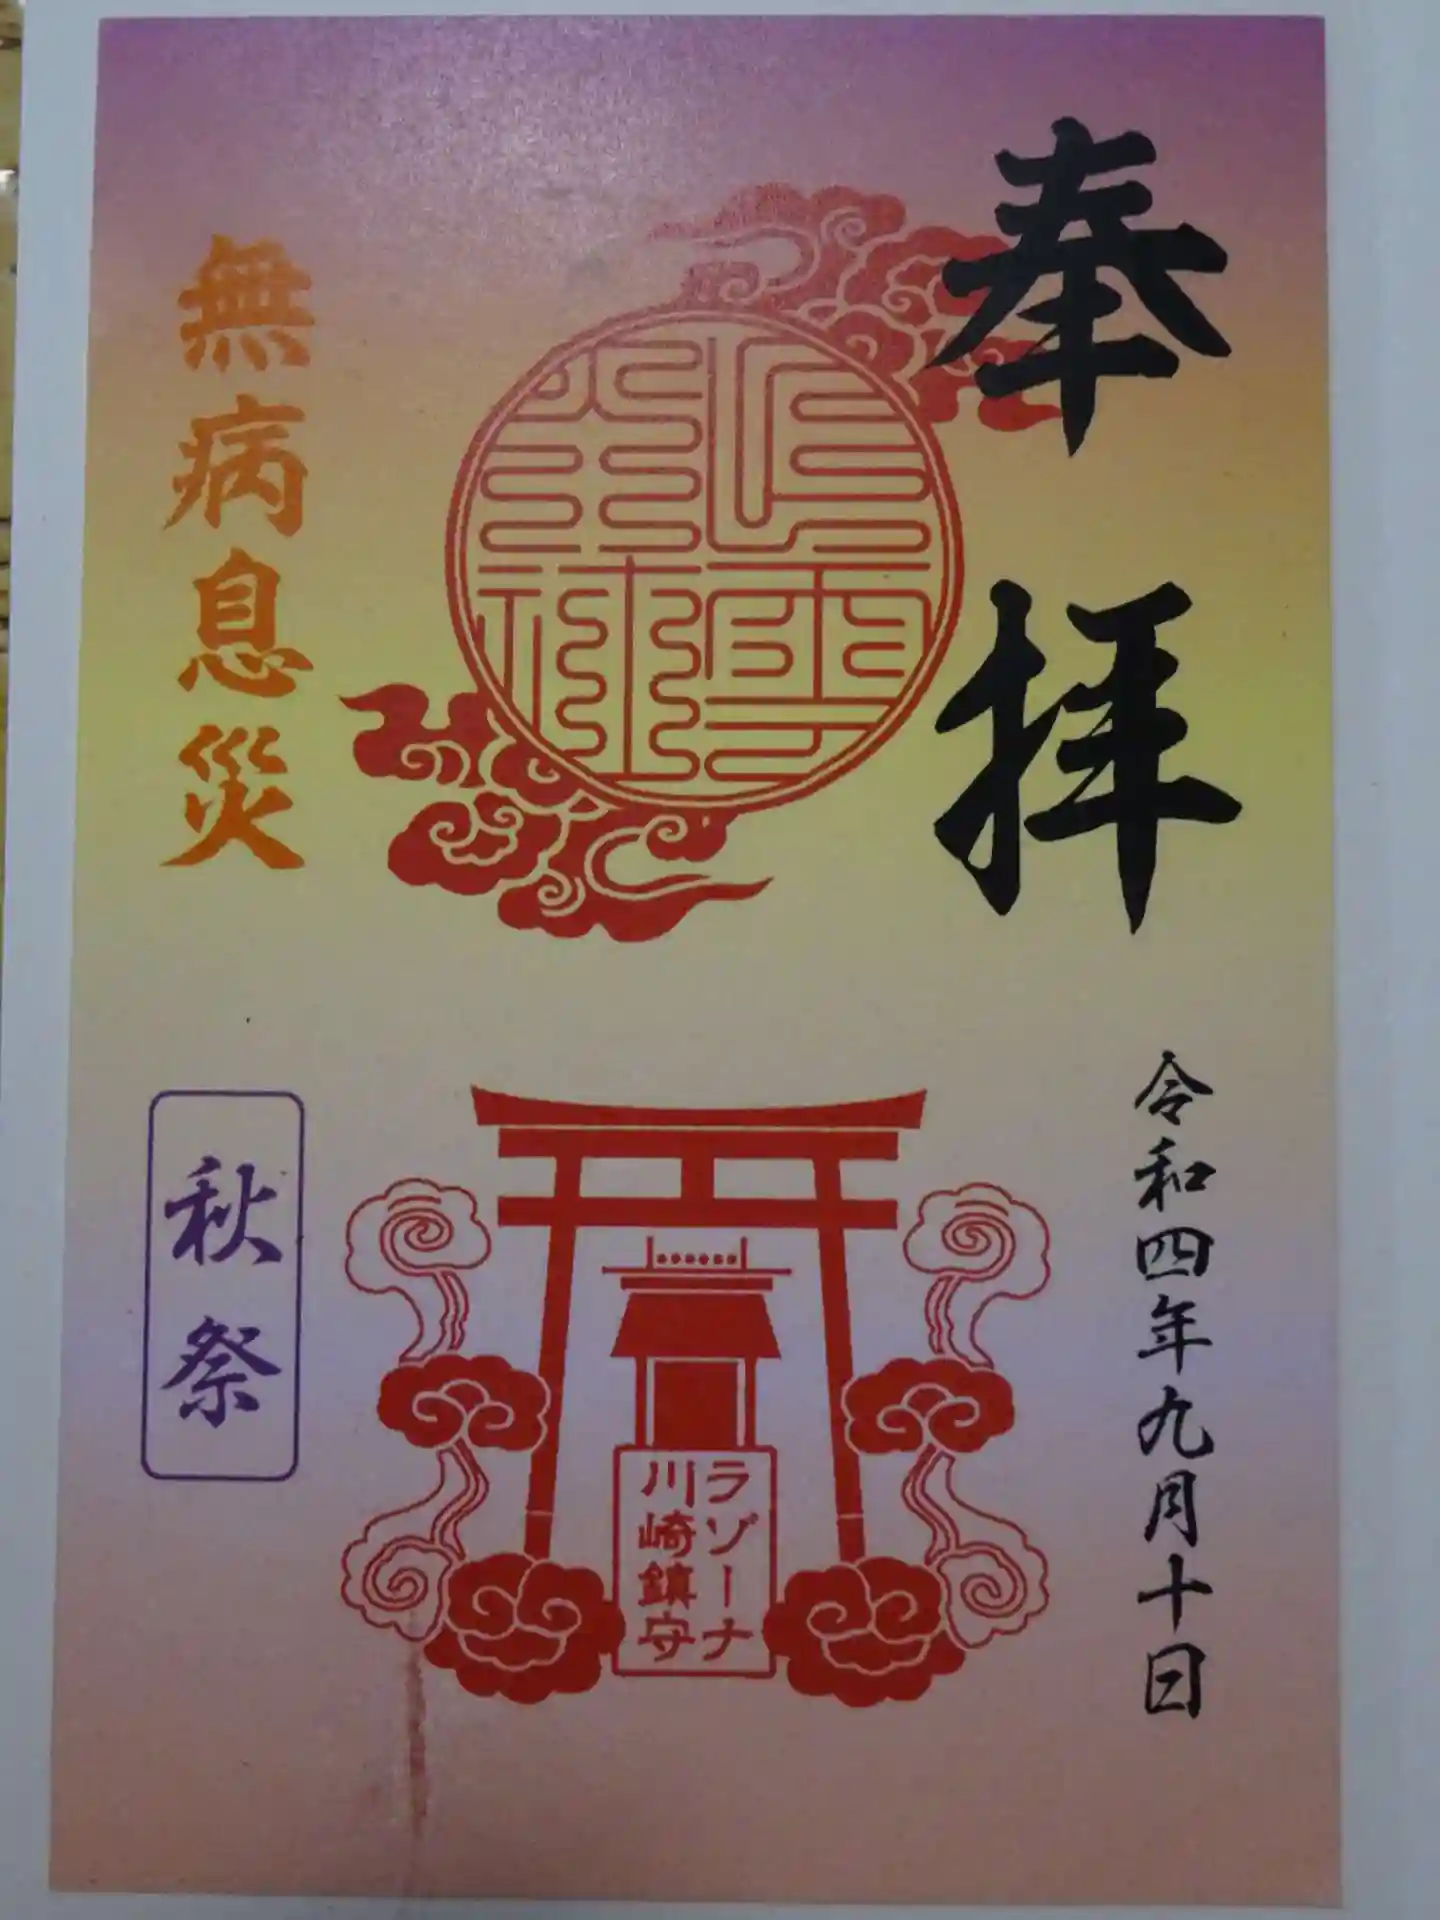 奉拝
令和四年九月十日
ラゾーナ
川崎鎮守
無病息災
秋祭